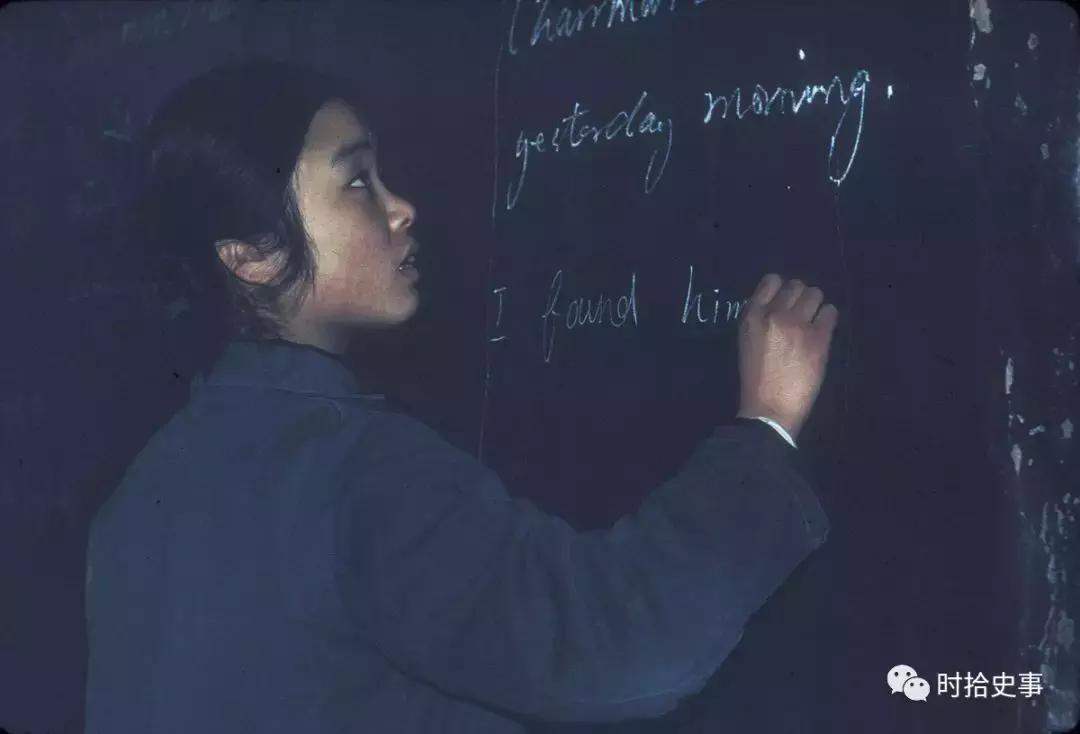 Chairman
yesterday morning.
I found him
时拾史事